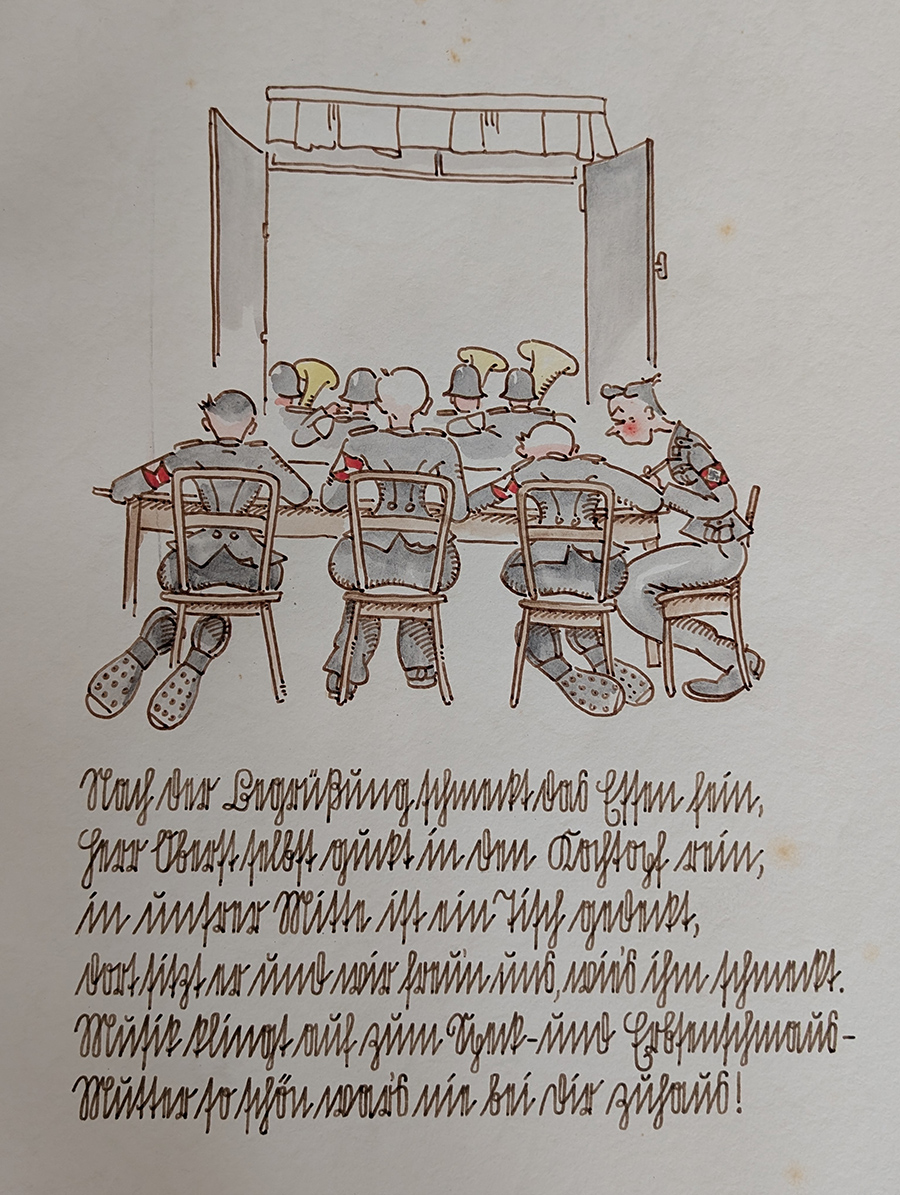 Nach der Begrüßung schmeckt das Essen fein,
Herr Oberst selbst guckt in den Kochtopf rein,
in unsrer Mitte ist ein Tisch gedeckt,
dort sitzt er und wir freu'n uns, wie's ihm schmeckt.
Musik klingt auf zum Speck- und Erbsenschmaus -
Mutter so schön war's nie bei dir zuhaus!